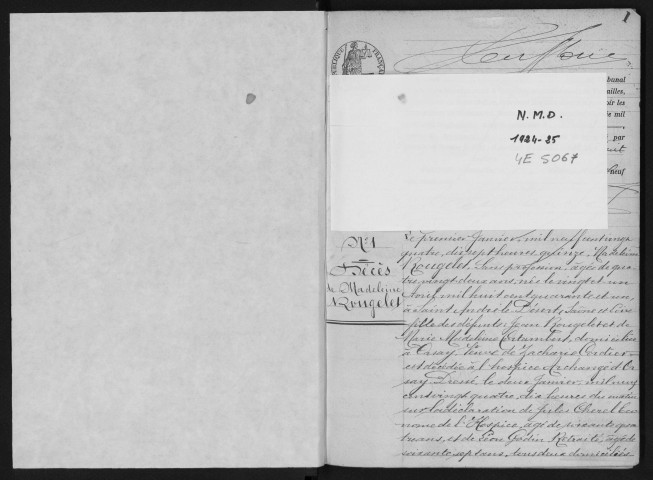 1
RÉPUBLIQUE FRANÇAISE
N.M.D.
1924-25
4E 5067
Nº 1
Décès
de Madeleine
Rougelet
Le premier Janvier mil neuf cent vingt
quatre, dix sept heures quinze, Madeleine
Rougelet, Sans profession, âgée de qua
tre vingt deux ans, née le vingt et un
Avril mil huit cent quarante et un,
à Saint André le Désert, Saône et Loire
fille des défunts Jean Rougelet et de
Marie Madeleine domiciliée
à Orsay, Veuve de Zacharie Cordier
est décédée à l'hospice Archangé d'Or
say. Dressé le deux Janvier mil neuf
cent vingt quatre, dix heures du matin
sur la déclaration de Jules Éco
nome de l'Hospice, âgé de soixante qua
tre ans, et de Léon Godin Retraité, âgé de
soixante sept ans, tous deux domiciliés